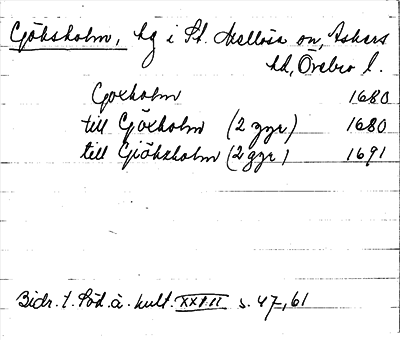 Cjöksholm, hg i St. Mellösa sn, Askers
hd, Örebro l.
Goxholm 1680
till Göxholm (2 ggr) 1680
till Giöksholm (2 ggr) 1691
Bidr. t. Söd. ä. kult. XXIII s. 47, 61